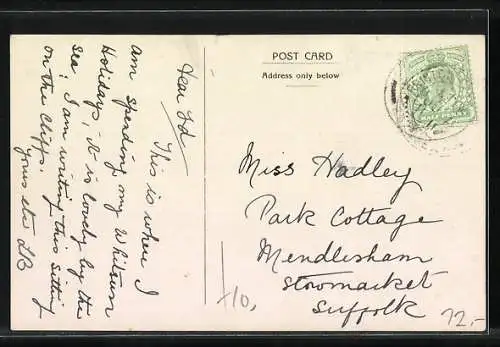 Dear Ed
This is where I
am spending my Whitsun
Holidays, it is lovely by the
sea. I am writing this sitting
on the Cliffs.
Yours etc LB
POST CARD
Address only below
HALF PENNY
Miss Hadley
Park Cottage
Mendlesham
Stowmarket
Suffolk
f10,
72.-